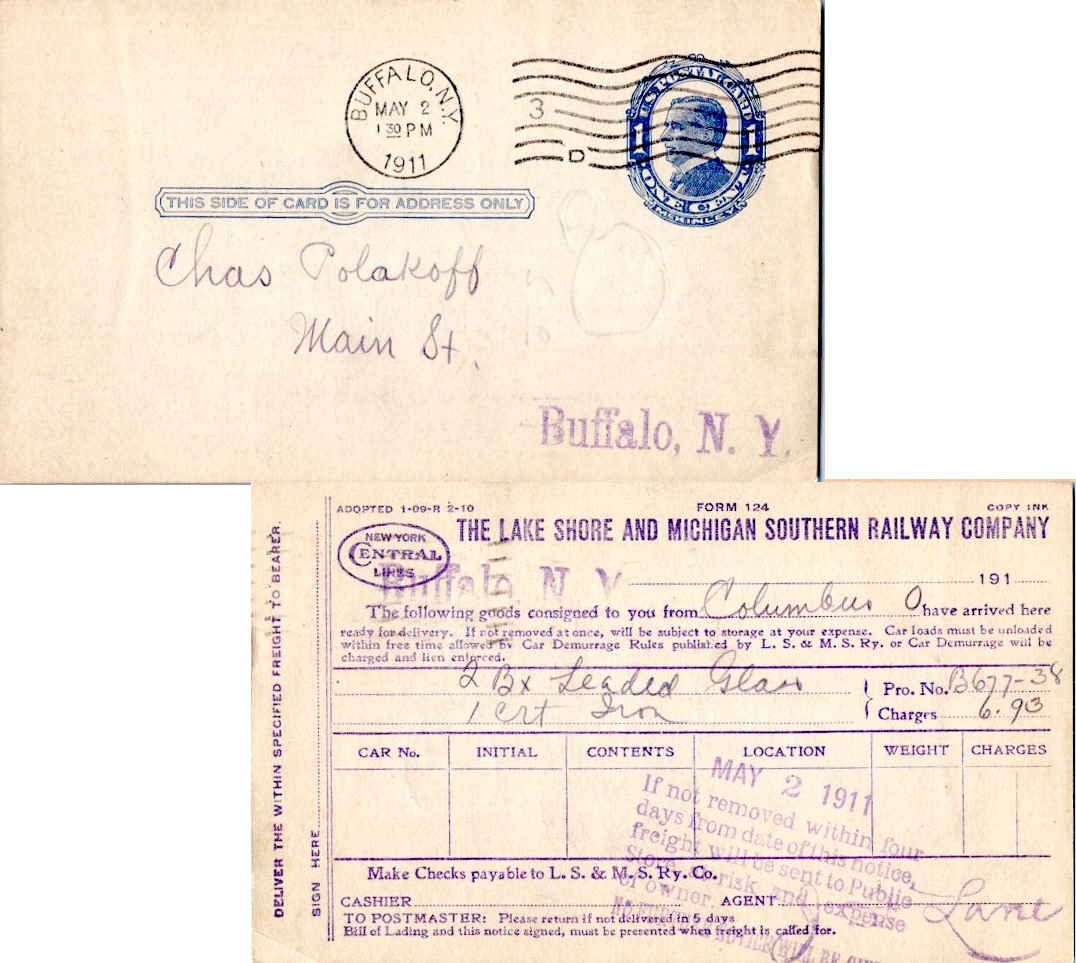 BUFFALO, N.Y.
MAY 2
1 30 PM
1911
3
D
U.S. POSTAL CARD
1 1
ONE CENT
McKINLEY
THIS SIDE OF CARD IS FOR ADDRESS ONLY
Chas Polakoff
Main St.
Buffalo, N. Y.
ADOPTED 1-09-R 2-10 FORM 124 COPY INK
NEW YORK
CENTRAL
LINES
THE LAKE SHORE AND MICHIGAN SOUTHERN RAILWAY COMPANY
Buffalo, N. Y. 191
The following goods consigned to you from Columbus O have arrived here
ready for delivery. If not removed at once, will be subject to storage at your expense. Car loads must be unloaded
within free time allowed by Car Demurrage Rules published by L. S. & M. S. Ry. or Car Demurrage will be
charged and lien enforced.
2 Bx Leaded Glass
1 Crt Iron
Pro. No. B677-38
Charges 6.93
CAR No. INITIAL CONTENTS LOCATION WEIGHT CHARGES
MAY 2 1911
If not removed within four
days from date of this notice,
freight will be sent to Public
Store, risk and expense
of owner.
Make Checks payable to L. S. & M. S. Ry. Co.
CASHIER AGENT Lane
TO POSTMASTER: Please return if not delivered in 5 days
Bill of Lading and this notice signed, must be presented when freight is called for.
DELIVER THE WITHIN SPECIFIED FREIGHT TO BEARER.
SIGN HERE